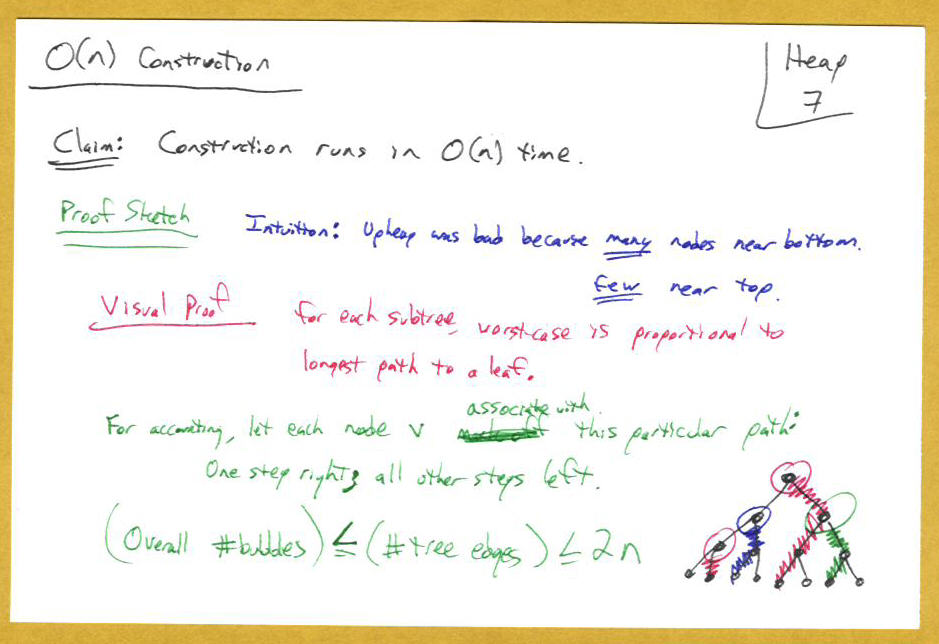 O(n) Construction
Heap
7
Claim: Construction runs in O(n) time.
Proof Sketch Intuition: Upheap was bad because many nodes near bottom.
Few near top.
Visual Proof For each subtree, worst-case is proportional to
longest path to a leaf.
For accounting, let each node v associate with this particular path:
One step right; all other steps left.
(Overall #bubbles) ≤ (#tree edges) ≤ 2n